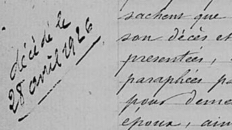 décédé le
28 avril 1926
sachons que
son décès et
presentées,
paraphées pa
pour deme
époux, ain